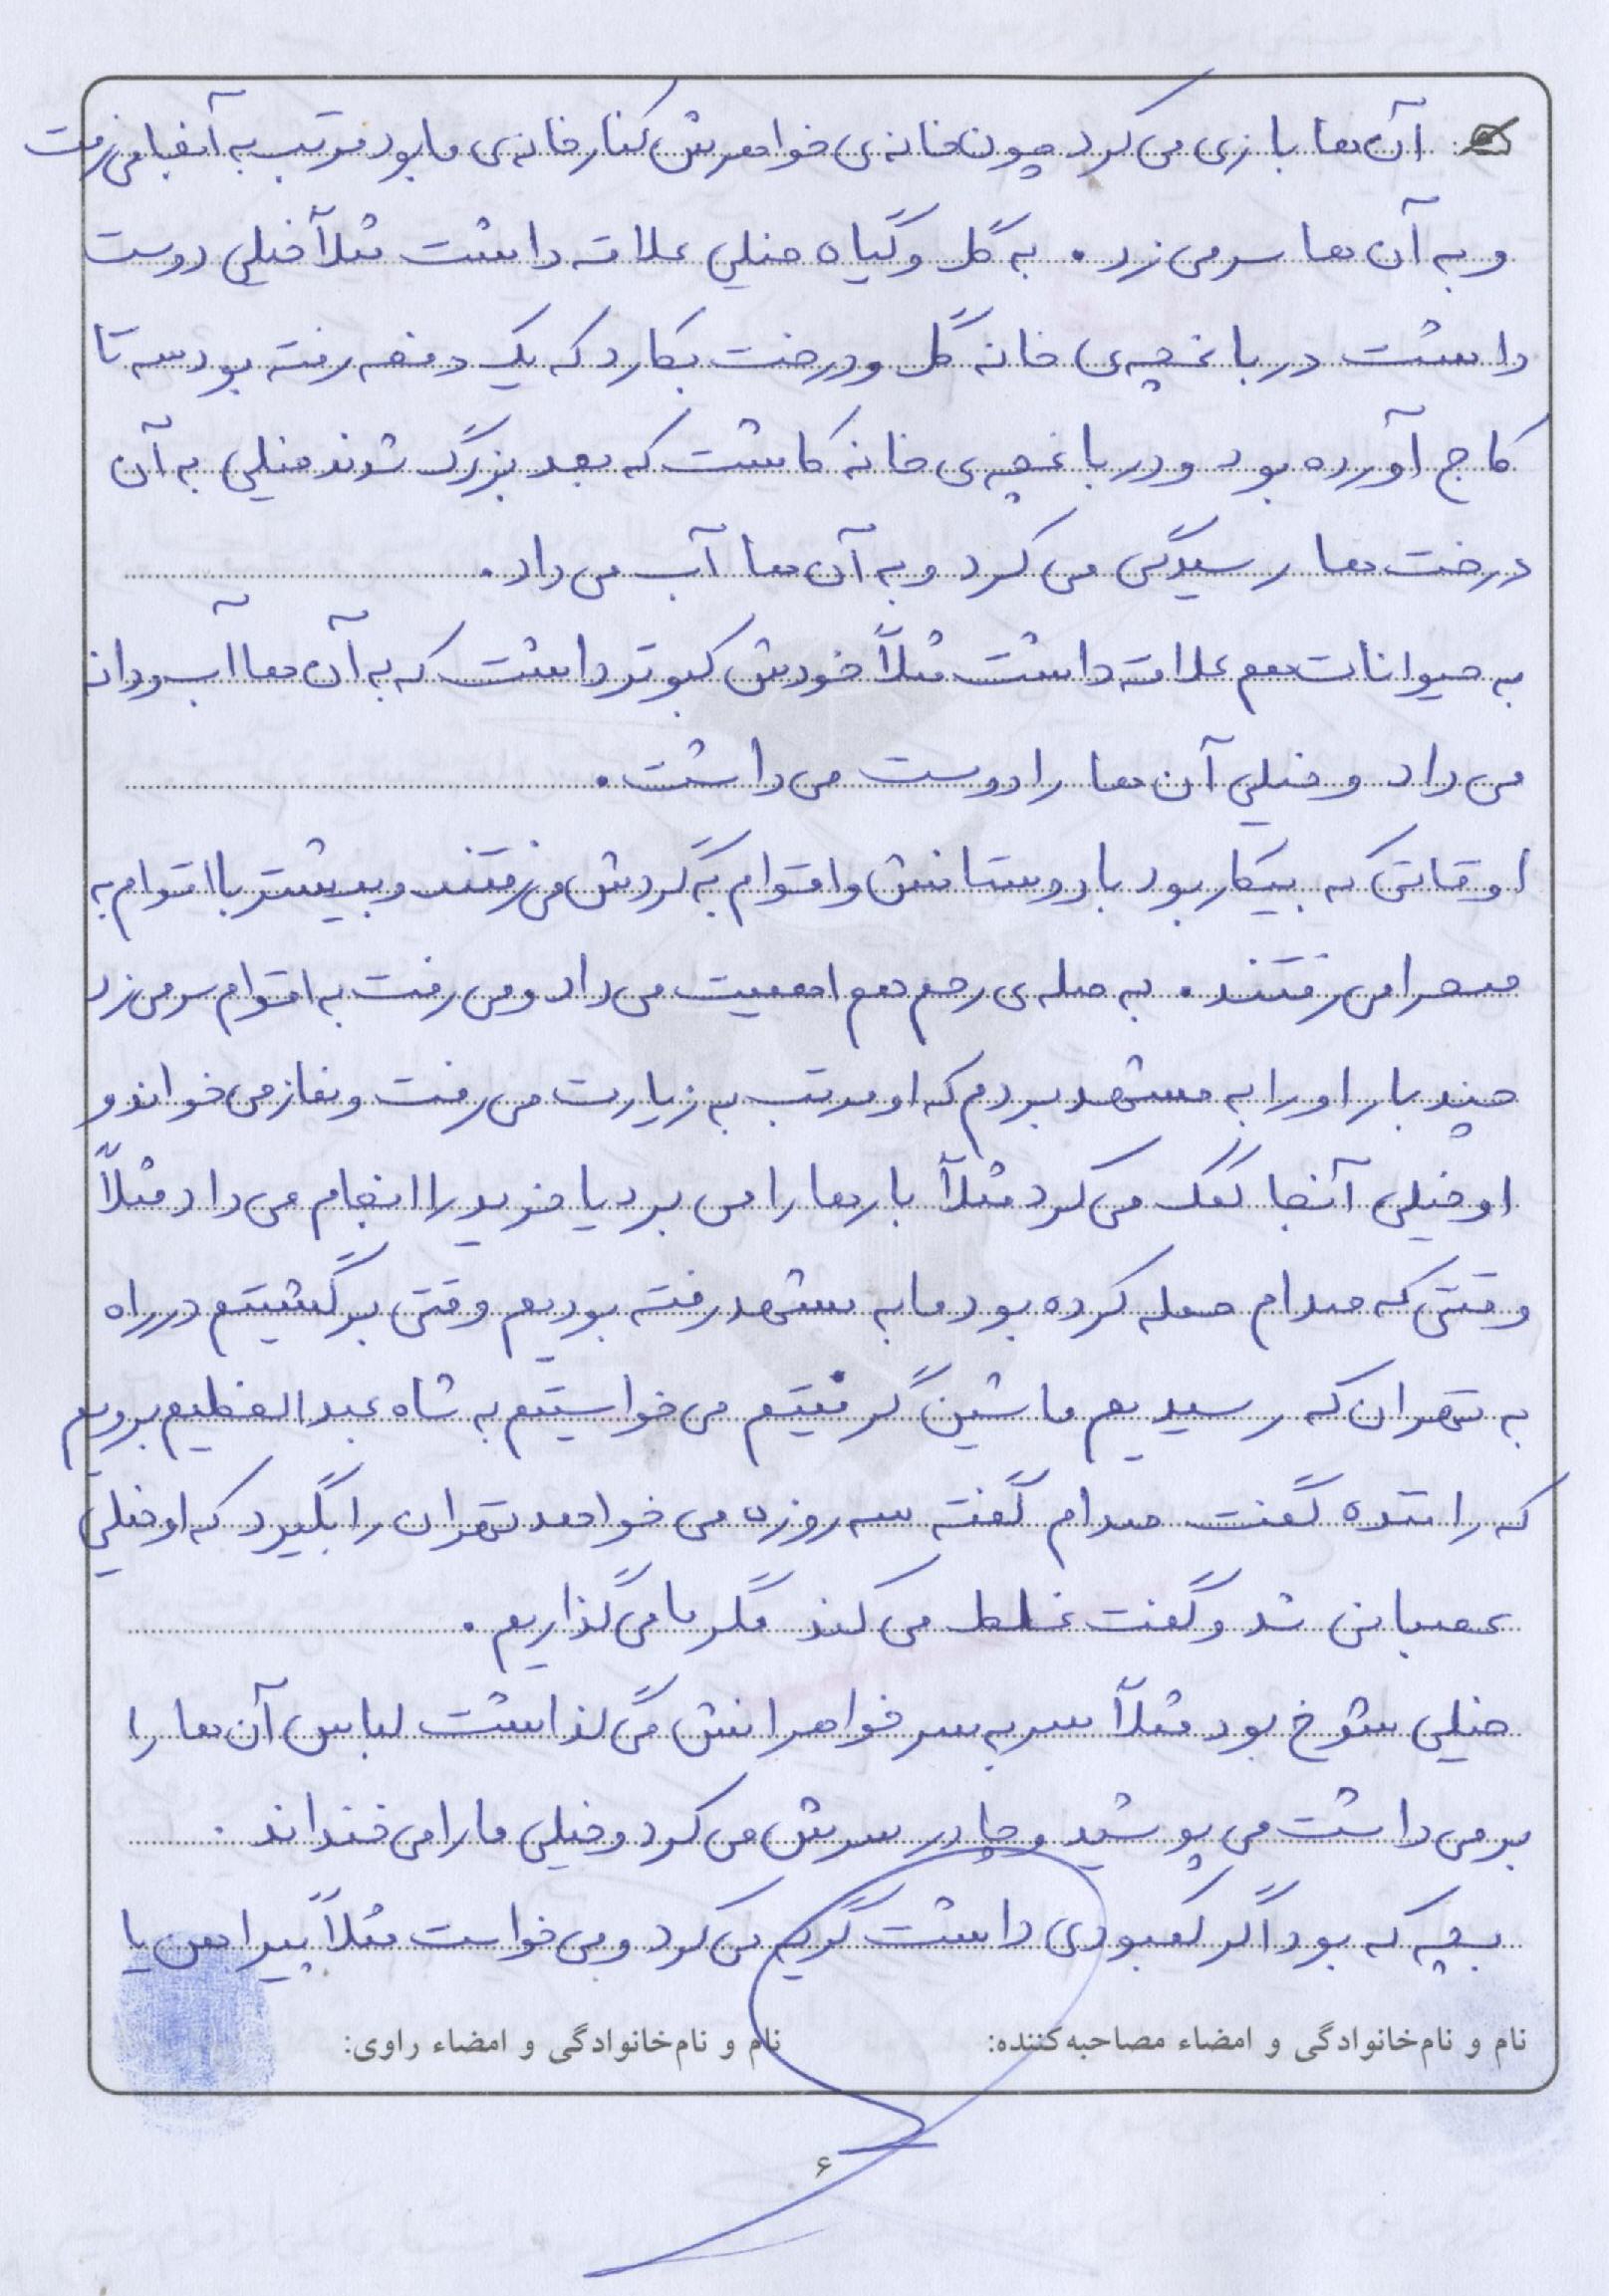 آن ها بازی می کرد چون خانه ی خواهرش کنار خانه ی ما بود مرتب به آنجا می رفت
و به آن ها سر می زد. به گل و گیاه خیلی علاقه داشت مثلاً خیلی دوست
داشت در باغچه ی خانه گل و درخت بکارد که یک دفعه رفته بود سه تا
کاج آورده بود و در باغچه ی خانه کاشت که بعد بزرگ شدند خیلی به آن
درخت ها رسیدگی می کرد و به آن ها آب می داد.
به حیوانات هم علاقه داشت مثلاً خودش کبوتر داشت که به آن ها آب و دانه
می داد و خیلی آن ها را دوست می داشت.
اوقاتی که بیکار بود با دوستانش و اقوام به گردش می رفتند و بیشتر با اقوام به
صحرا می رفتند. به صله ی رحم هم اهمیت می داد و می رفت به اقوام سر می زد
چند بار او را به مشهد بردم که او مرتب به زیارت می رفت و نماز می خواند و
او خیلی آنجا کمک می کرد مثلاً بارها را می برد یا خرید را انجام می داد مثلاً
وقتی که صدام حمله کرده بود ما به مشهد رفته بودیم وقتی برگشتیم در راه
به تهران که رسیدیم ماشین گرفتیم می خواستیم به شاه عبدالعظیم برویم
که راننده گفت صدام گفته سه روزه می خواهد تهران را بگیرد که او خیلی
عصبانی شد و گفت غلط می کند مگر ما می گذاریم.
خیلی شوخ بود مثلاً سر به سر خواهرانش می گذاشت لباس آن ها را
برمی داشت می پوشید و چادر سرش می کرد و خیلی ما را می خنداند.
بچه که بود اگر کمبودی داشت گریه می کرد و می خواست مثلاً پیراهن یا
نام و نام‌خانوادگی و امضاء مصاحبه‌کننده: نام و نام‌خانوادگی و امضاء راوی:
۶